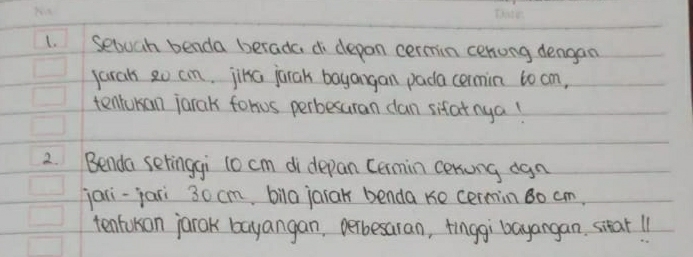 No
Date
1. Sebuah benda berada di depan cermin cekung dengan
jarak 20 cm. jika jarak bayangan pada cermin 60 cm,
tentukan jarak fokus perbesaran dan sifatnya !
2. Benda setinggi 10 cm di depan cermin cekung dgn
jari-jari 30 cm, bila jarak benda ke cermin 80 cm.
tentukan jarak bayangan, perbesaran, tinggi bayangan, sifat !!